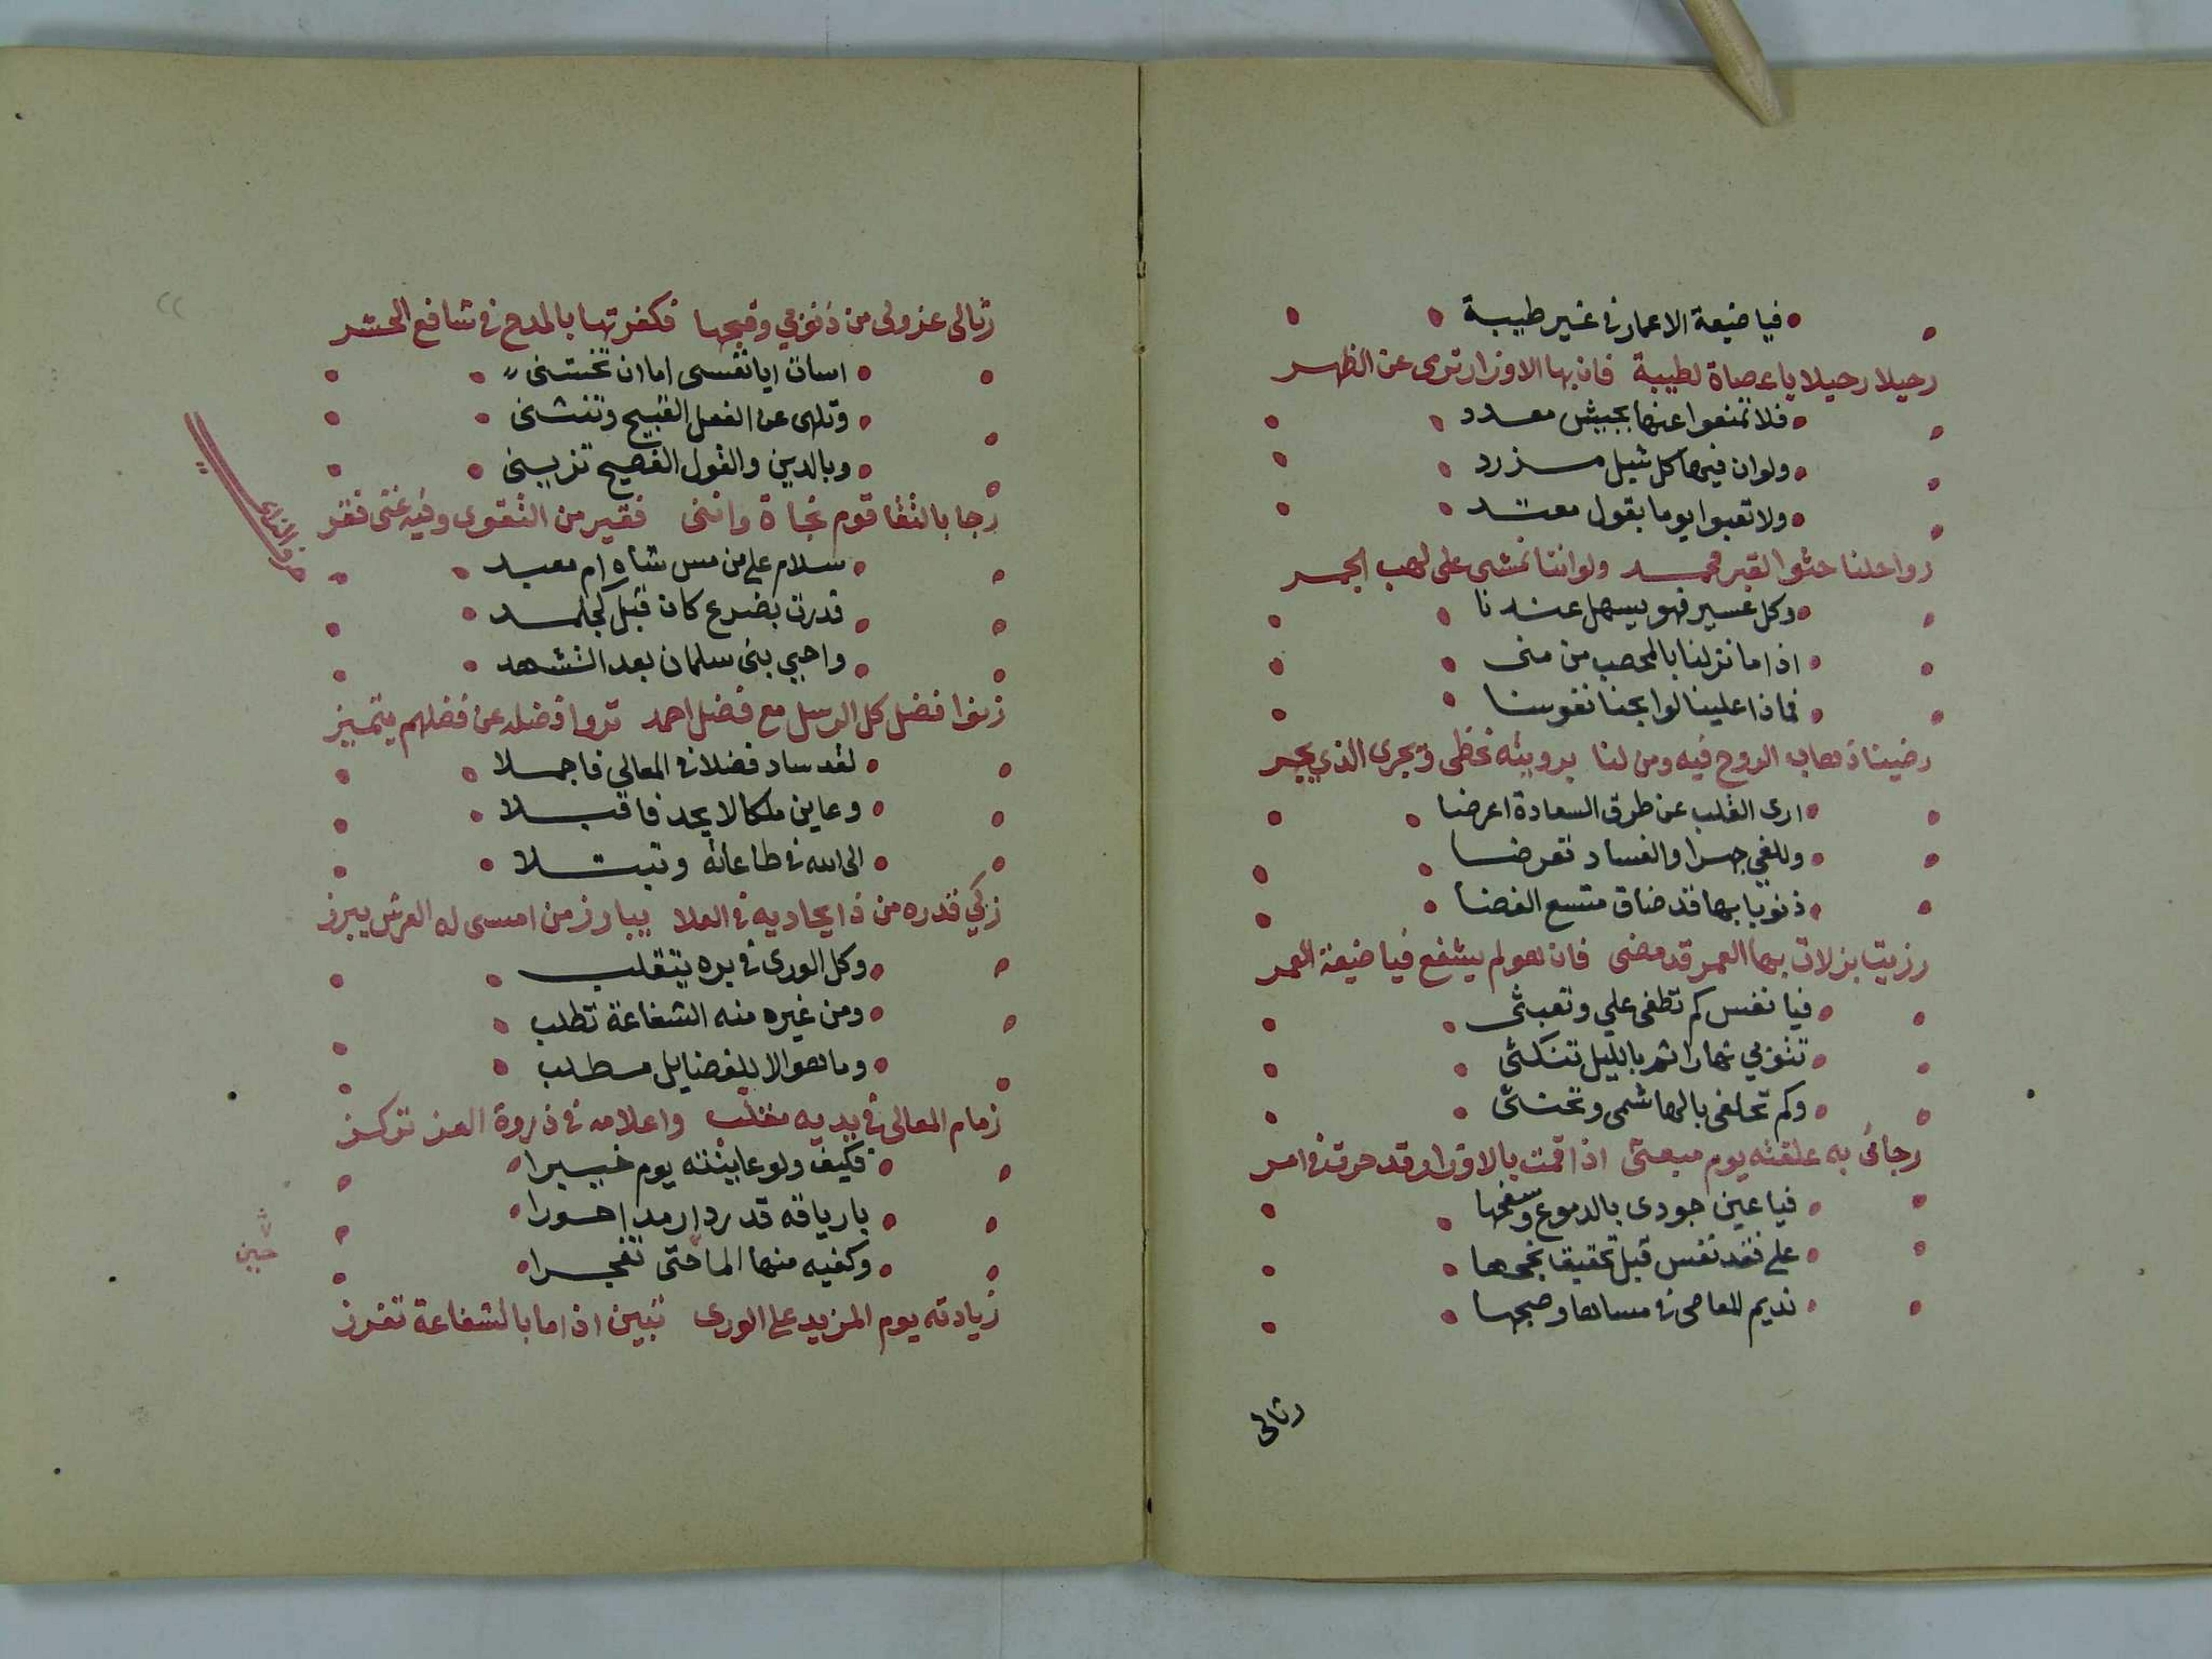 فيا ضيعة الاعمار في غير طيبة
رحيلا رحيلا يا عصاة لطيبة فان بها الاوزار ترمى عن الظهر
فلا تمنعوا عنها بجيش معدد
ولو ان فيها كل شبل مزرد
ولا تعبوا يوما بقول معتد
رواحلنا حثوا لقبر محمد ولو اننا نمشى على لهب الجمر
وكل عسير فهو يسهل عندنا
اذا ما نزلنا بالمحصب من منى
فماذا علينا لو ابحنا نفوسنا
رضينا ذهاب الروح فيه ومن لنا برويته نحظى ويجرى الذي يجر
ارى القلب عن طرق السعادة اعرضا
وللغي جهرا والفساد تعرضا
ذنوبا بها قد ضاق متسع الفضا
رزيت بزلات بها العمر قد مضى فان هو لم يشفع فيا ضيعة العمر
فيا نفس كم تطغى علي وتعبثى
تتوبي نهارا ثم بالليل تنكثى
وكم تحلفى بالهاشمى وتحنثى
رجائى به علقته يوم مبعثى اذا قمت بالاوزار قد حرت في امر
فيا عين جودى بالدموع وسفحها
على فقد نفس قبل تحقيق نجحها
نديم المعاصى في مساها وصبحها
رثالى
رثالى عزولى من ذنوبي وقبحها فكفرتها بالمدح في شافع الحشر
اسات ايا نفسى اما ان تحسنى
وتلهى عن الفعل القبيح وتنثنى
وبالدين والقول الفصيح تزينى
رجا بالتقا قوم نجاة واننى فقير من التقوى وفيه غنى فقر
حرف الزاى
سلام على من مس شاه ام معبد
فدرت بضرع كان قبل كجلمد
واحيي بنى سلمان بعد التشهد
زنوا فضل كل الرسل مع فضل احمد تروا فضله عن فضلهم يتميز
لقد ساد فضلا في المعالى فاجملا
وعاين ملكا لا يحد فاقبلا
الى الله في طاعاته وتبتلا
زكي قدره من ذا يجاديه في العلا يبارز من امسى له العرش يبرز
وكل الورى في بره يتقلب
ومن غيره منه الشفاعة تطلب
وما هو الا للفضايل مطلب
زمام المعالى في يديه مقلب واعلامه في ذروة العز تركز
فكيف ولو عاينته يوم خيبرا
بارياقه قد رد ارمد احورا
وكفيه منها الما حتى تفجرا
زيادته يوم المزيد على الورى تبين اذا ما بالشفاعة تفرز